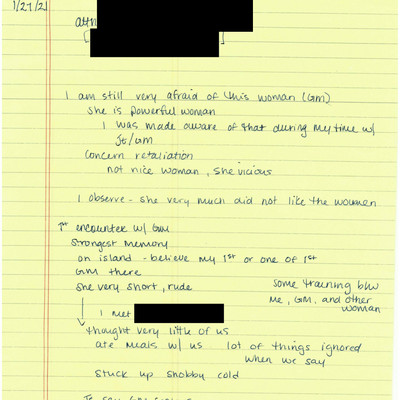 1/27/21
attn
[ ]
I am still very afraid of this woman (GM)
she is powerful woman
I was made aware of that during my time w/
JE/GM
concern retaliation
not nice woman, she vicious
I observe - she very much did not like the women
1st encounter w/ GM
strongest memory
on island - believe my 1st or one of 1st
GM there
she very short, rude
some training b/w
me, GM, and other
woman
I met
thought very little of us
ate meals w/ us lot of things ignored
when we say
stuck up snobby cold